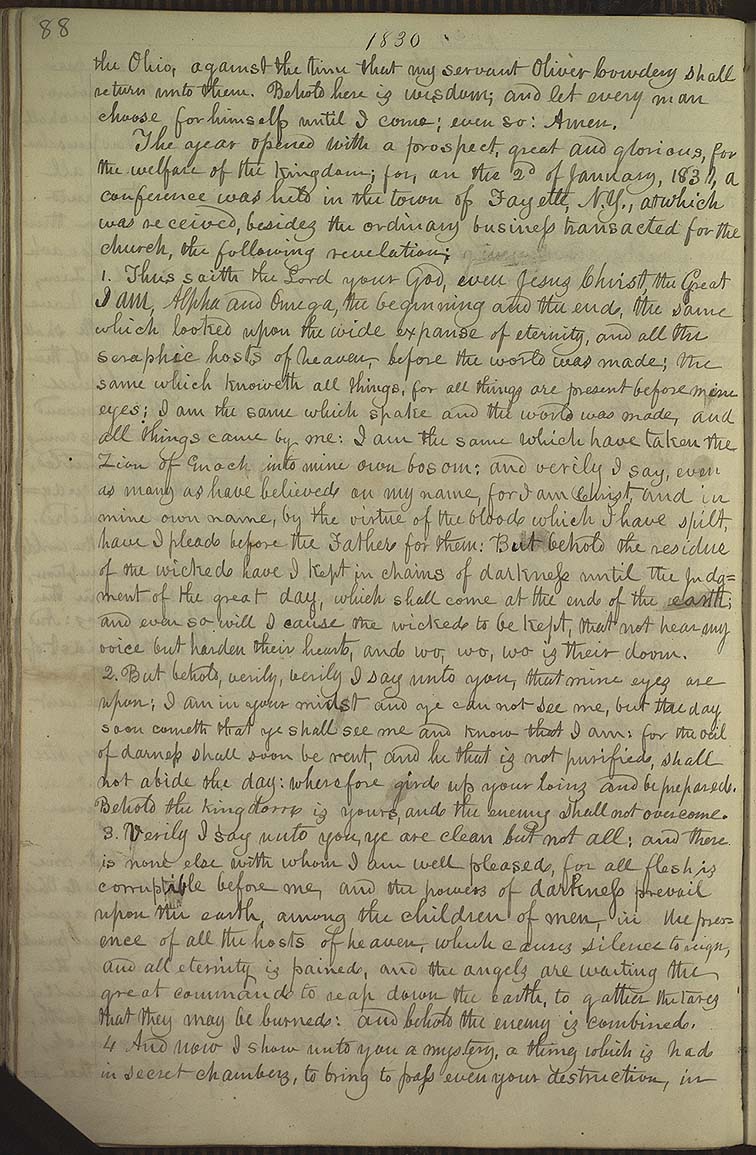 88
1830
the Ohio, against the time that my servant Oliver Cowdery shall
return unto them. Behold here is wisdom; and let every man
choose for himself until I come; even so: Amen.
The year opened with a prospect, great and glorious, for
the welfare of the kingdom; for, on the 2d of January, 1831, a
conference was held in the town of Fayette, N.Y., at which
was received, besides the ordinary business transacted for the
church, the following revelation;
1. Thus saith the Lord your God, even Jesus Christ, the Great
I am, Alpha and Omega, the beginning and the end, the same
which looked upon the wide expanse of eternity, and all the
seraphic hosts of heaven, before the world was made; the
same which knoweth all things, for all things are present before mine
eyes; I am the same which spake and the world was made, and
all things came by me: I am the same which have taken the
Zion of Enoch into mine own bosom: and verily I say, even
as many as have believed on my name, for I am Christ, and in
mine own name, by the virtue of the blood which I have spilt,
have I plead before the Father for them: But behold the residue
of the wicked have I kept in chains of darkness until the judg=
ment of the great day, which shall come at the end of the earth;
and even so will I cause the wicked to be kept, that not hear my
voice but harden their hearts, and wo, wo, wo is their doom.
2. But behold, verily, verily I say unto you, that mine eyes are
upon; I am in your midst and ye can not see me, but the day
soon cometh that ye shall see me and know that I am: for the veil
of darness shall soon be rent, and he that is not purified, shall
not abide the day: wherefore gird up your loins and be prepared.
Behold the kingdom is yours, and the enemy shall not overcome.
3. Verily I say unto you, ye are clean but not all; and there
is none else with whom I am well pleased, for all flesh is
corruptible before me, and the powers of darkness prevail
upon the earth, among the children of men, in the pres=
ence of all the hosts of heaven, which causes silence to reign,
and all eternity is pained, and the angels are waiting the
great command to reap down the earth, to gather the tares
that they may be burned: and behold the enemy is combined.
4 And now I show unto you a mystery, a thing which is had
in secret chambers, to bring to pass even your destruction, in